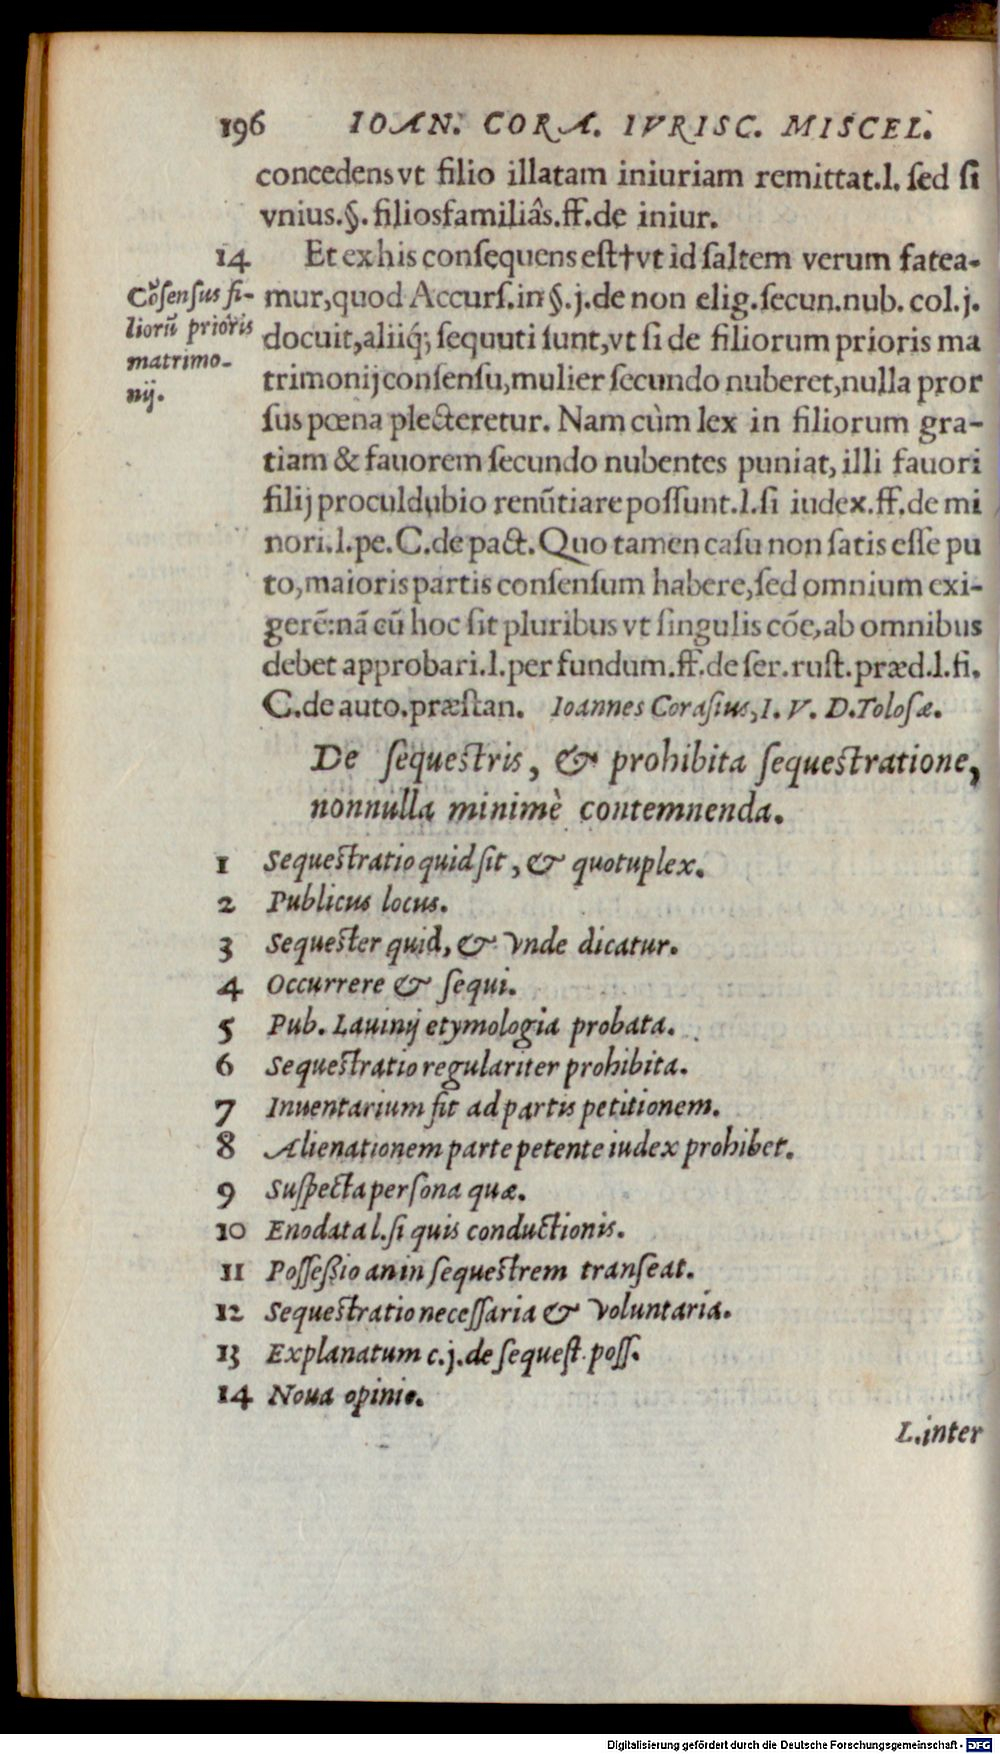 196 IOAN. CORA. IVRISC. MISCEL.
concedens vt filio illatam iniuriam remittat.l. ſed ſi
vnius.§. filiosfamiliâs.ff.de iniur.
14 Et ex his conſequens eſt†vt id ſaltem verum fatea-
Cõſenſus fi-
liorũ prioris
matrimo-
nij.
mur,quod Accurſ.in §.j.de non elig.ſecun.nub. col.j.
docuit,aliiq́; ſequuti ſunt,vt ſi de filiorum prioris ma
trimonij conſenſu,mulier ſecundo nuberet,nulla pror
ſus pœna plecteretur. Nam cùm lex in filiorum gra-
tiam & fauorem ſecundo nubentes puniat, illi fauori
filij proculdubio renũtiare poſſunt.l.ſi iudex.ff.de mi
nori.l.pe.C.de pact. Quo tamen caſu non ſatis eſſe pu
to,maioris partis conſenſum habere,ſed omnium exi-
gerẽ:nã cũ hoc ſit pluribus vt ſingulis cõe,ab omnibus
debet approbari.l.per fundum.ff.de ſer.ruſt.præd.l.fi.
C.de auto.præſtan. Ioannes Coraſius,I. V. D.Toloſæ.
De ſequeſtris, & prohibita ſequeſtratione,
nonnulla minimè contemnenda.
1 Sequeſtratio quid ſit, & quotuplex.
2 Publicus locus.
3 Sequeſter quid, & vnde dicatur.
4 Occurrere & ſequi.
5 Pub. Lauinij etymologia probata.
6 Sequeſtratio regulariter prohibita.
7 Inuentarium fit ad partis petitionem.
8 Alienationem parte petente iudex prohibet.
9 Suſpecta perſona quæ.
10 Enodata l.ſi quis conductionis.
11 Poſſeßio an in ſequeſtrem tranſeat.
12 Sequeſtratio neceſſaria & voluntaria.
13 Explanatum c.j.de ſequeſt. poſſ.
14 Noua opinio.
L.inter
Digitalisierung gefördert durch die Deutsche Forschungsgemeinschaft - DFG